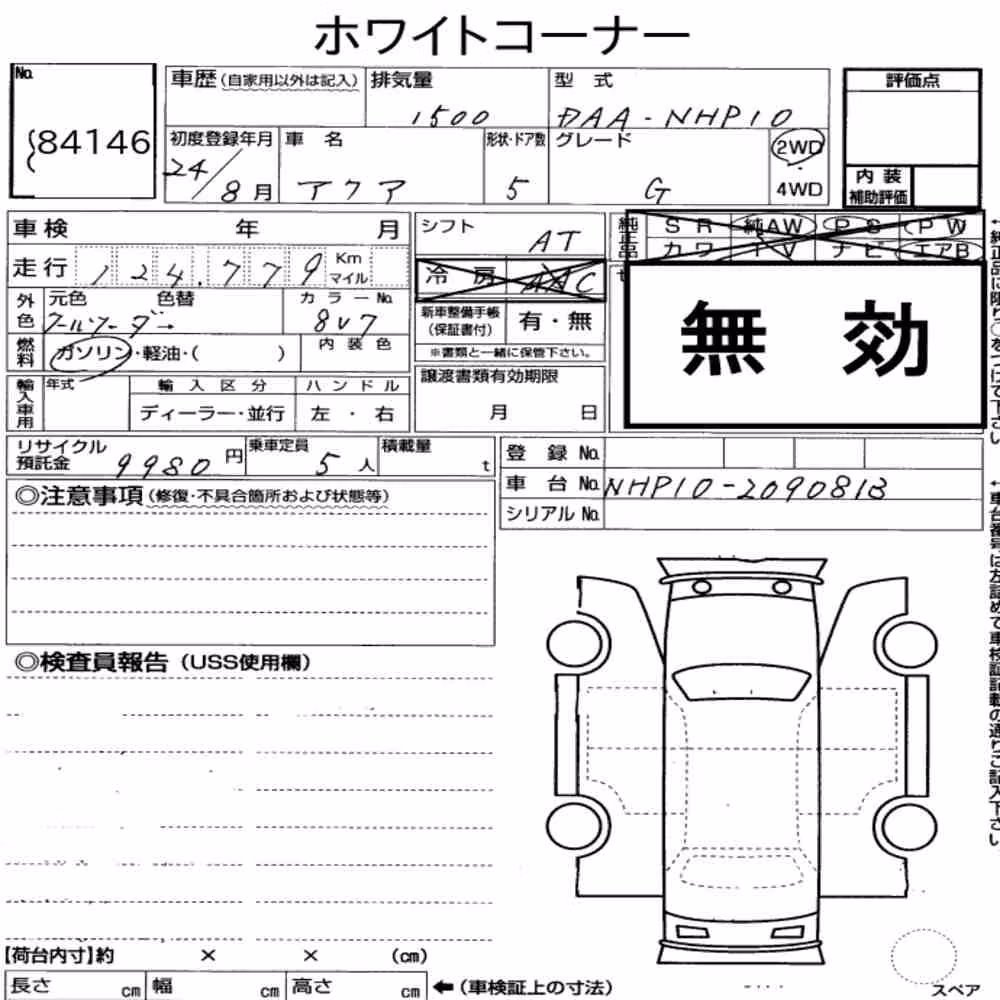 ホワイトコーナー
No.
84146
車歴(自家用以外は記入) 排気量 1500 型式 DAA-NHP10
初度登録年月 24/8月 車名 アクア 形状・ドア数 5 グレード G 2WD 4WD
評価点
内装補助評価
車検 年 月
走行 124,779 Km マイル
外色 元色 クールソーダー 色替 カラーNo. 8V7
燃料 ガソリン・軽油・( ) 内装色
輸入車用 年式 輸入区分 ディーラー・並行 ハンドル 左・右
シフト AT
冷房 AAC
新車整備手帳(保証書付) 有・無
※書類と一緒に保管下さい。
譲渡書類有効期限
月 日
純正品 SR 純AW PS PW
カワ TV ナビ エアB
無効
リサイクル預託金 9980円 乗車定員 5人 積載量 t
登録No.
車台No. NHP10-2090813
シリアルNo.
◎注意事項(修復・不具合箇所および状態等)
◎検査員報告(USS使用欄)
【荷台内寸】約 × × (cm)
長さ cm 幅 cm 高さ cm ←(車検証上の寸法)
スペア
←純正品に限り○をつけて下さい
←車台番号は左詰めで車検証記載の通りご記入下さい